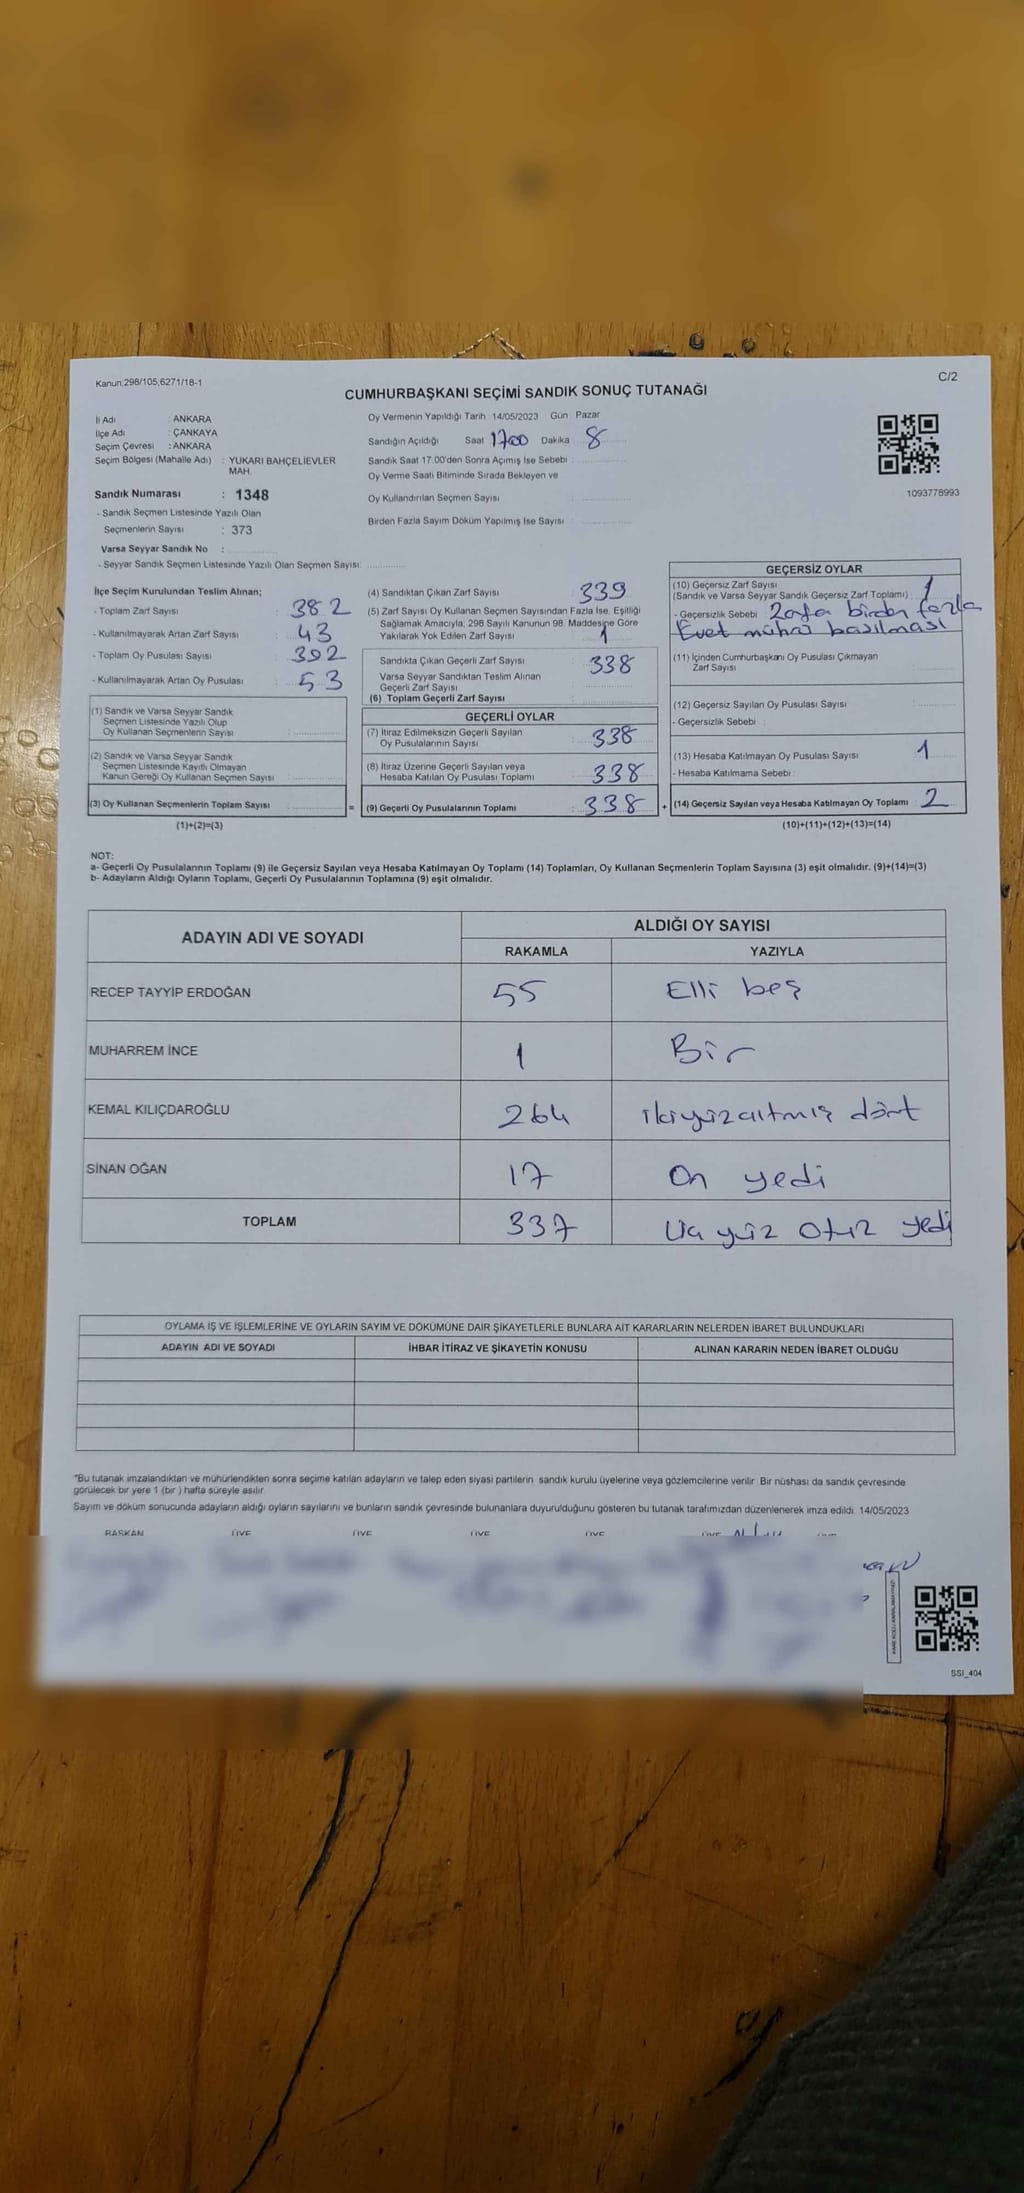 Kanun,298/105,6271/18-1
C/2
CUMHURBAŞKANI SEÇİMİ SANDIK SONUÇ TUTANAĞI
İl Adı : ANKARA
İlçe Adı : ÇANKAYA
Seçim Çevresi : ANKARA
Seçim Bölgesi (Mahalle Adı) : YUKARI BAHÇELİEVLER
MAH.
Sandık Numarası : 1348
- Sandık Seçmen Listesinde Yazılı Olan
Seçmenlerin Sayısı : 373
Varsa Seyyar Sandık No :
- Seyyar Sandık Seçmen Listesinde Yazılı Olan Seçmen Sayısı:
Oy Vermenin Yapıldığı Tarih 14/05/2023 Gün Pazar
Sandığın Açıldığı Saat 1700 Dakika 8
Sandık Saat 17:00'den Sonra Açımış İse Sebebi :
Oy Verme Saati Bitiminde Sırada Bekleyen ve
Oy Kullandırılan Seçmen Sayısı
Birden Fazla Sayım Döküm Yapılmış İse Sayısı
1093778993
İlçe Seçim Kurulundan Teslim Alınan;
- Toplam Zarf Sayısı : 382
- Kullanılmayarak Artan Zarf Sayısı : 43
- Toplam Oy Pusulası Sayısı : 392
- Kullanılmayarak Artan Oy Pusulası : 53
(1) Sandık ve Varsa Seyyar Sandık
Seçmen Listesinde Yazılı Olup
Oy Kullanan Seçmenlerin Sayısı :
(2) Sandık ve Varsa Seyyar Sandık
Seçmen Listesinde Kayıtlı Olmayan
Kanun Gereği Oy Kullanan Seçmen Sayısı :
(3) Oy Kullanan Seçmenlerin Toplam Sayısı :
(1)+(2)=(3)
=
(4) Sandıktan Çıkan Zarf Sayısı : 339
(5) Zarf Sayısı Oy Kullanan Seçmen Sayısından Fazla İse, Eşitliği
Sağlamak Amacıyla; 298 Sayılı Kanunun 98. Maddesine Göre
Yakılarak Yok Edilen Zarf Sayısı : 1
Sandıkta Çıkan Geçerli Zarf Sayısı : 338
Varsa Seyyar Sandıktan Teslim Alınan
Geçerli Zarf Sayısı
(6) Toplam Geçerli Zarf Sayısı
GEÇERLİ OYLAR
(7) İtiraz Edilmeksizin Geçerli Sayılan
Oy Pusulalarının Sayısı : 338
(8) İtiraz Üzerine Geçerli Sayılan veya
Hesaba Katılan Oy Pusulası Toplamı : 338
(9) Geçerli Oy Pusulalarının Toplamı : 338
+
GEÇERSİZ OYLAR
(10) Geçersiz Zarf Sayısı
(Sandık ve Varsa Seyyar Sandık Geçersiz Zarf Toplamı) : 1
- Geçersizlik Sebebi birden fazla
Evet mührü basılması
(11) İçinden Cumhurbaşkanı Oy Pusulası Çıkmayan
Zarf Sayısı
(12) Geçersiz Sayılan Oy Pusulası Sayısı :
- Geçersizlik Sebebi :
(13) Hesaba Katılmayan Oy Pusulası Sayısı : 1
- Hesaba Katılmama Sebebi :
(14) Geçersiz Sayılan veya Hesaba Katılmayan Oy Toplamı : 2
(10)+(11)+(12)+(13)=(14)
NOT:
a- Geçerli Oy Pusulalarının Toplamı (9) ile Geçersiz Sayılan veya Hesaba Katılmayan Oy Toplamı (14) Toplamları, Oy Kullanan Seçmenlerin Toplam Sayısına (3) eşit olmalıdır. (9)+(14)=(3)
b- Adayların Aldığı Oyların Toplamı, Geçerli Oy Pusulalarının Toplamına (9) eşit olmalıdır.
ADAYIN ADI VE SOYADI
ALDIĞI OY SAYISI
RAKAMLA YAZIYLA
RECEP TAYYİP ERDOĞAN 55 Elli beş
MUHARREM İNCE 1 Bir
KEMAL KILIÇDAROĞLU 264 ikiyüzaltmış dört
SİNAN OĞAN 17 On yedi
TOPLAM 337 Üç yüz otuz yedi
OYLAMA İŞ VE İŞLEMLERİNE VE OYLARIN SAYIM VE DÖKÜMÜNE DAİR ŞİKAYETLERLE BUNLARA AİT KARARLARIN NELERDEN İBARET BULUNDUKLARI
ADAYIN ADI VE SOYADI İHBAR İTİRAZ VE ŞİKAYETİN KONUSU ALINAN KARARIN NEDEN İBARET OLDUĞU
*Bu tutanak imzalandıktan ve mühürlendikten sonra seçime katılan adayların ve talep eden siyasi partilerin sandık kurulu üyelerine veya gözlemcilerine verilir. Bir nüshası da sandık çevresinde
görülecek bir yere 1 (bir ) hafta süreyle asılır.
Sayım ve döküm sonucunda adayların aldığı oyların sayılarını ve bunların sandık çevresinde bulunanlara duyurulduğunu gösteren bu tutanak tarafımızdan düzenlenerek imza edildi. 14/05/2023
BAŞKAN ÜYE ÜYE ÜYE ÜYE ÜYE ÜYE
SSI_404